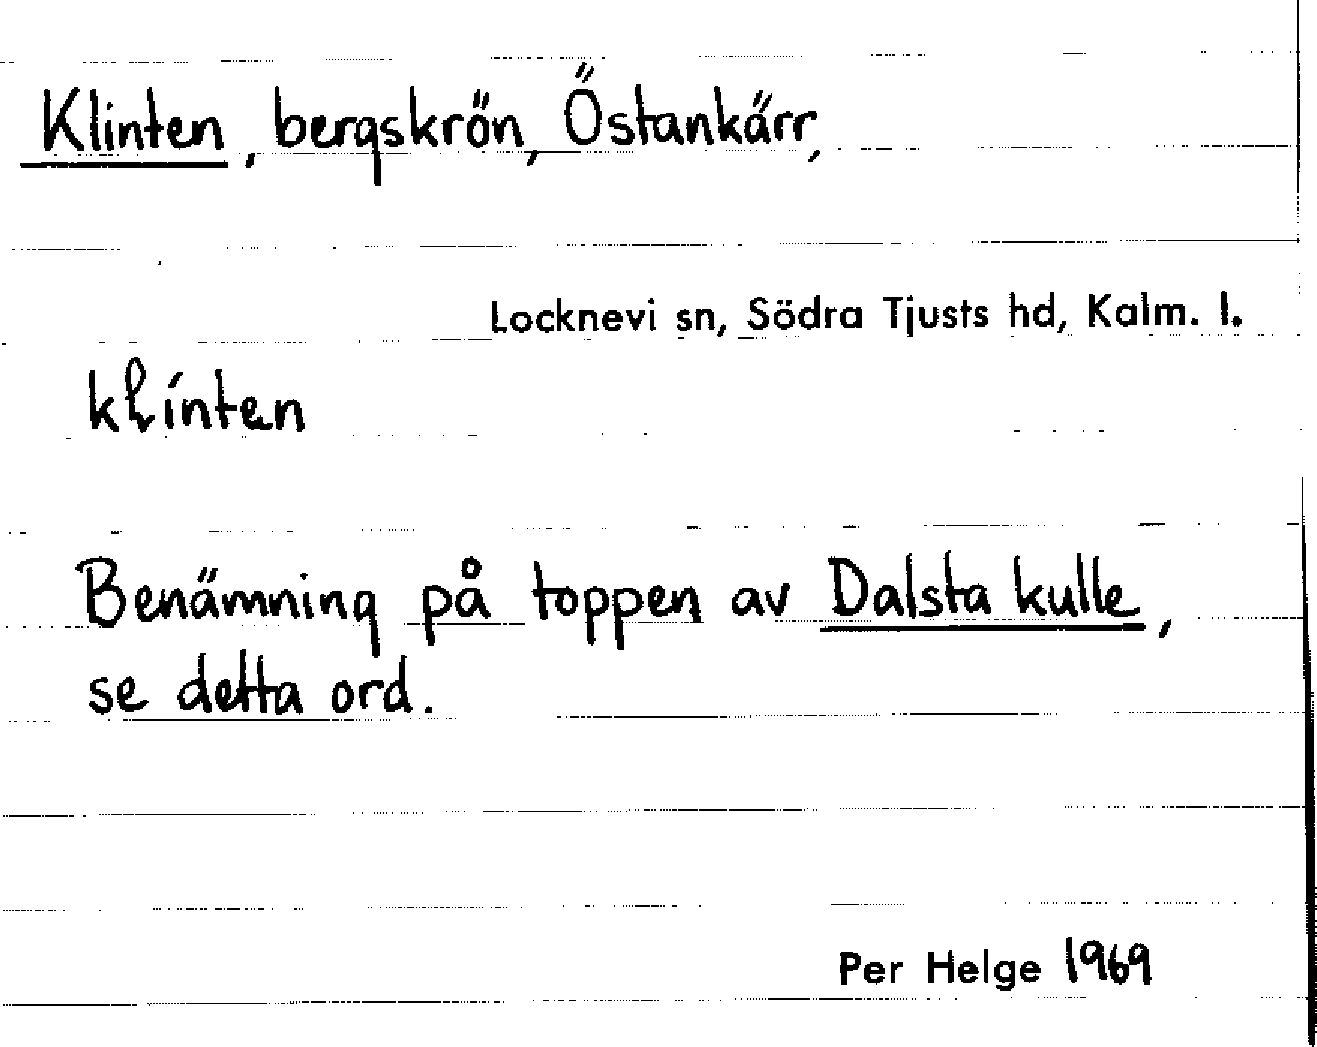 Klinten, bergskrön, Östankärr,
Locknevi sn, Södra Tjusts hd, Kalm. l.
klínten
Benämning på toppen av Dalsta kulle,
se detta ord.
Per Helge 1969